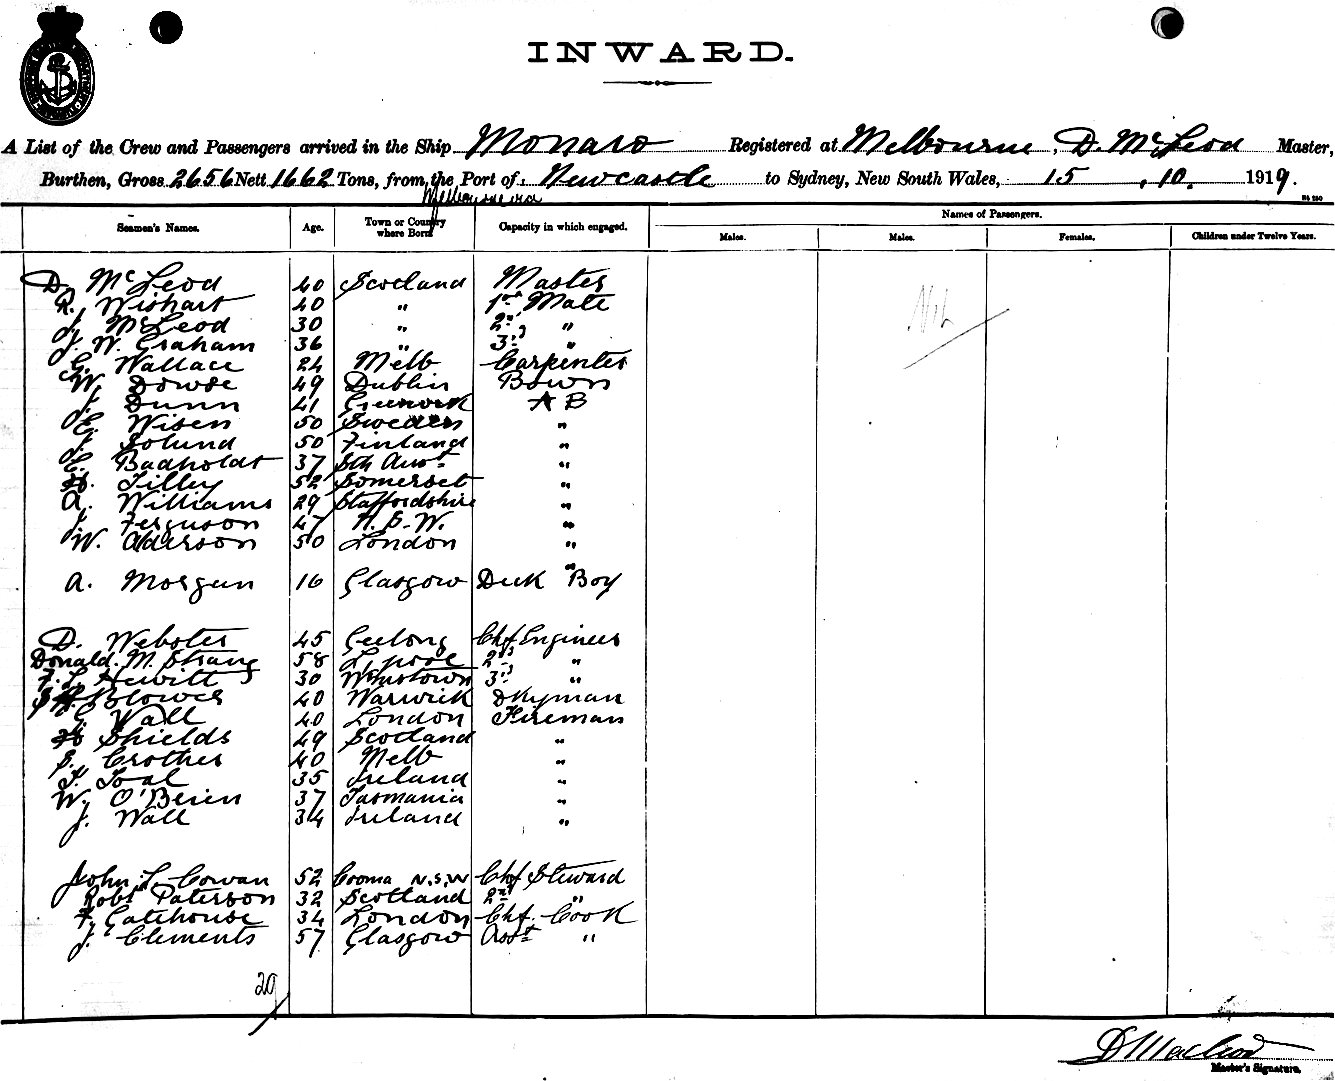 INWARD.
A List of the Crew and Passengers arrived in the Ship Monaro Registered at Melbourne, D. McLeod Master,
Burthen, Gross 2656 Nett 1662 Tons, from the Port of Newcastle to Sydney, New South Wales, 15 . 10. 1919.
Melbourne via
Names of Passengers.
Seamen's Names. Age. Town or Country where Born Capacity in which engaged. Males. Males. Females. Children under Twelve Years.
D. McLeod 40 Scotland Master
R. Wishart 40 " 1st Mate
J. McLeod 30 " 2nd "
J. W. Graham 36 " 3rd "
Nil
G. Wallace 24 Melb Carpenter
W. Dowse 49 Dublin Bosun
J. Dunn 41 Greenock A B
E. Wisen 50 Sweden "
J. Solund 50 Finland "
C. Badholdt 37 Sth Aust "
H. Tilley 52 Somerset "
A. Williams 29 Staffordshire "
J. Ferguson 47 N. S. W. "
W. Aderson 50 London "
A. Morgan 16 Glasgow Deck Boy
D. Webster 45 Geelong Chf Engineer
Donald. M. Strang 58 L'pool 2nd "
F. L. Hewitt 30 Wmstown 3rd "
Blower 40 Warwick Dkyman
C. Wall 40 London Fireman
H Shields 49 Scotland "
S. Crother 40 Melb "
F. Toal 35 Ireland "
W. O'Brien 37 Tasmania "
J. Wall 34 Ireland "
John L. Cowan 52 Cooma N.S.W Chf Steward
Robt Paterson 32 Scotland 2nd "
F. Gatehouse 34 London Chf. Cook
J. Clements 57 Glasgow Asst "
29
D MacLeod
Master's Signature.